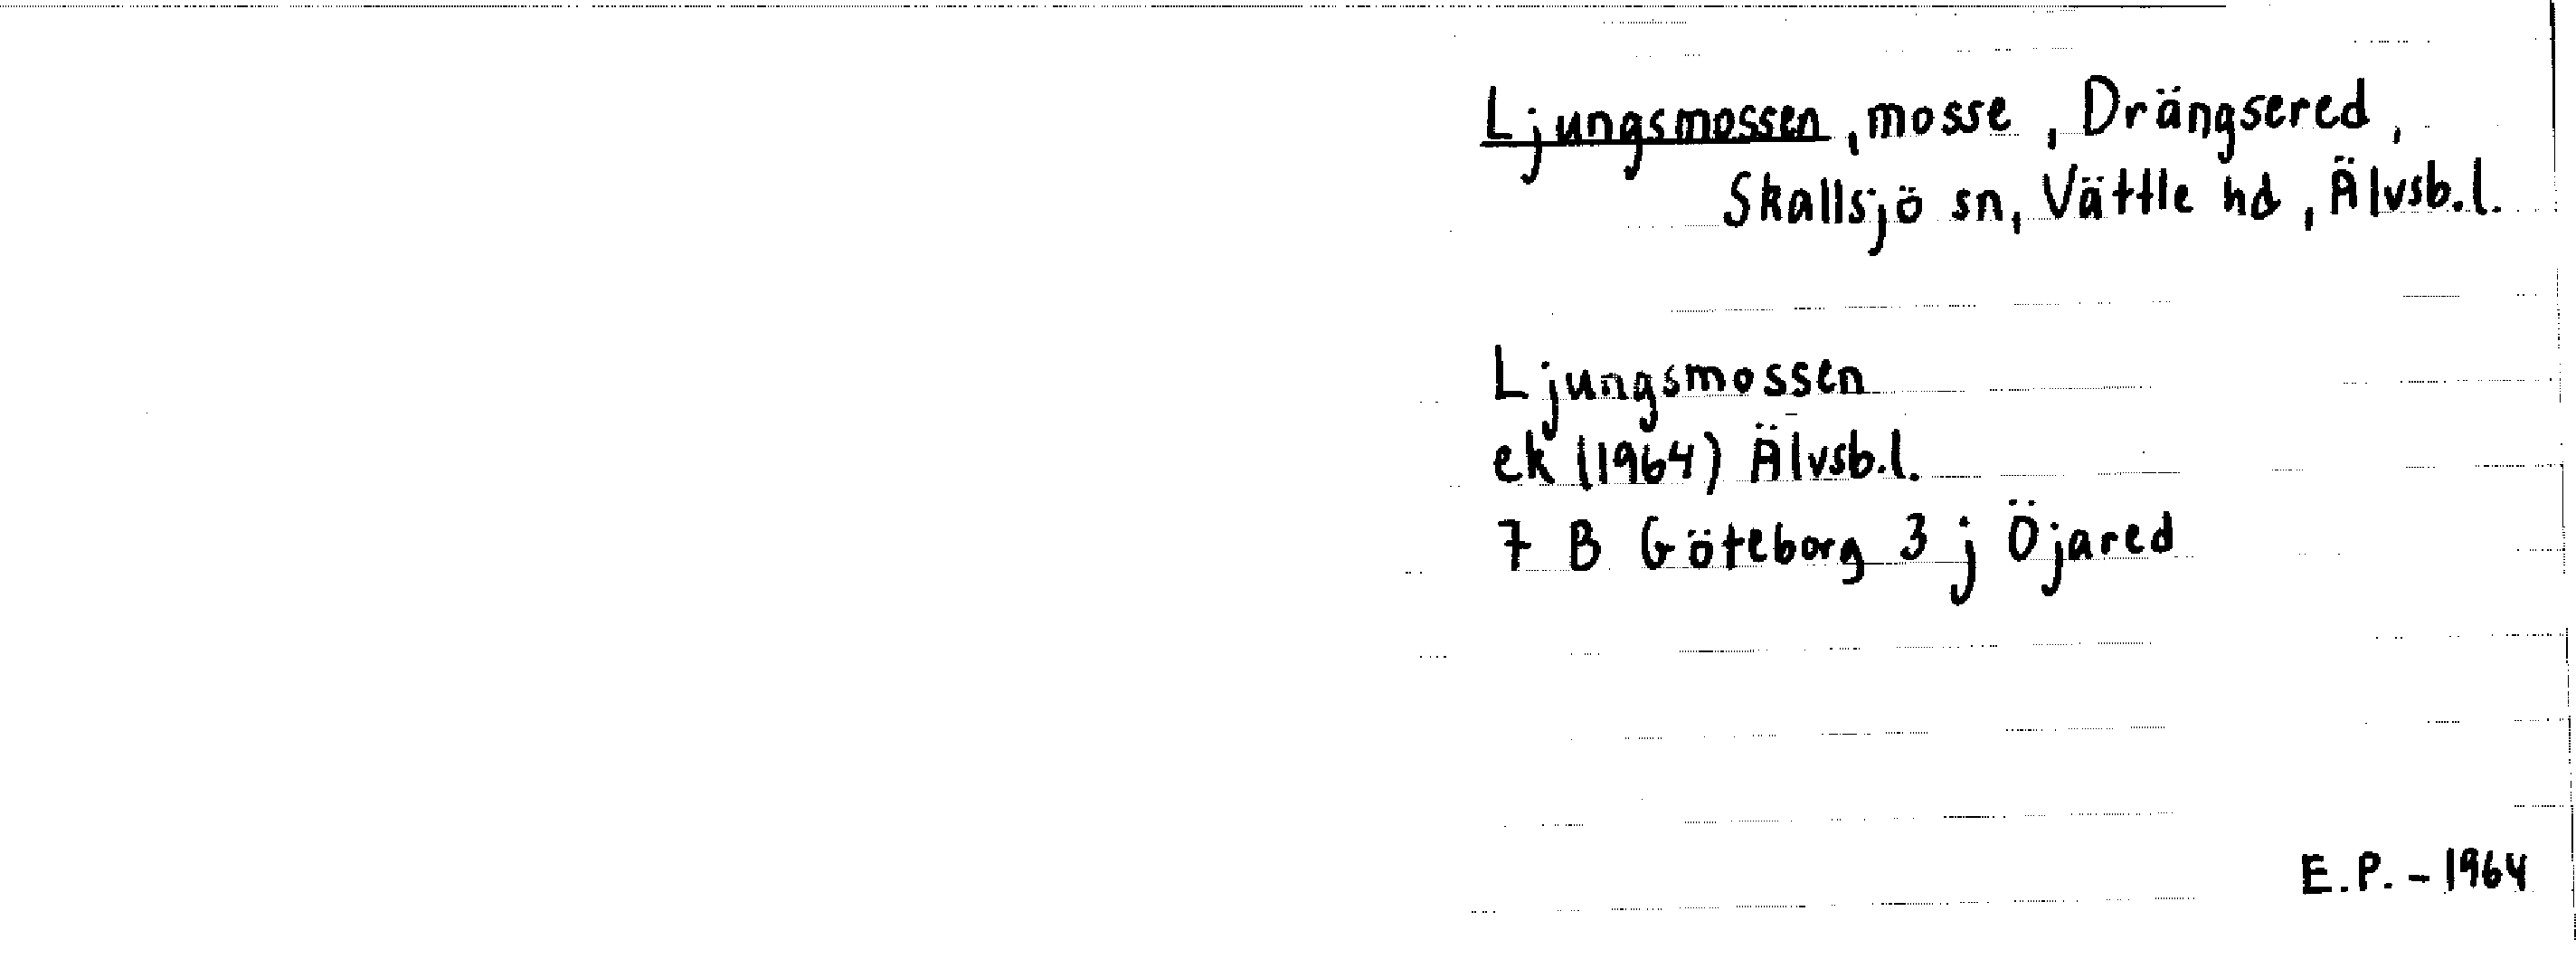 Ljungsmossen, mosse, Drängsered,
Skallsjö sn, Vättle hd, Älvsb.l.
Ljungsmossen
ek (1964) Älvsb.l.
7 B Göteborg 3 j Öjared
E.P. - 1964